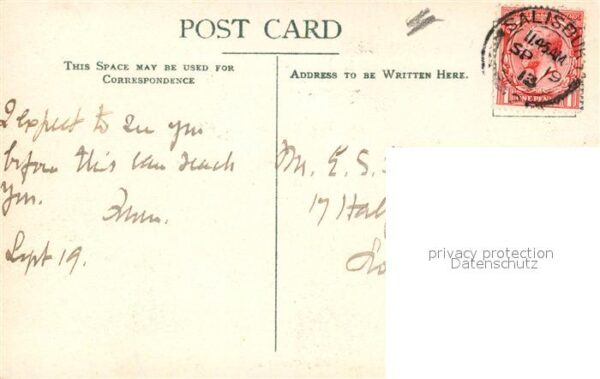 POST CARD
THIS SPACE MAY BE USED FOR
CORRESPONDENCE
ADDRESS TO BE WRITTEN HERE.
SALISBU
11.45 AM
SP 19
13
ONE PENNY
I expect to see you
before this can reach
you.
Sept 19.
Mr. E. S.
17 Hal
Lo
privacy protection
Datenschutz